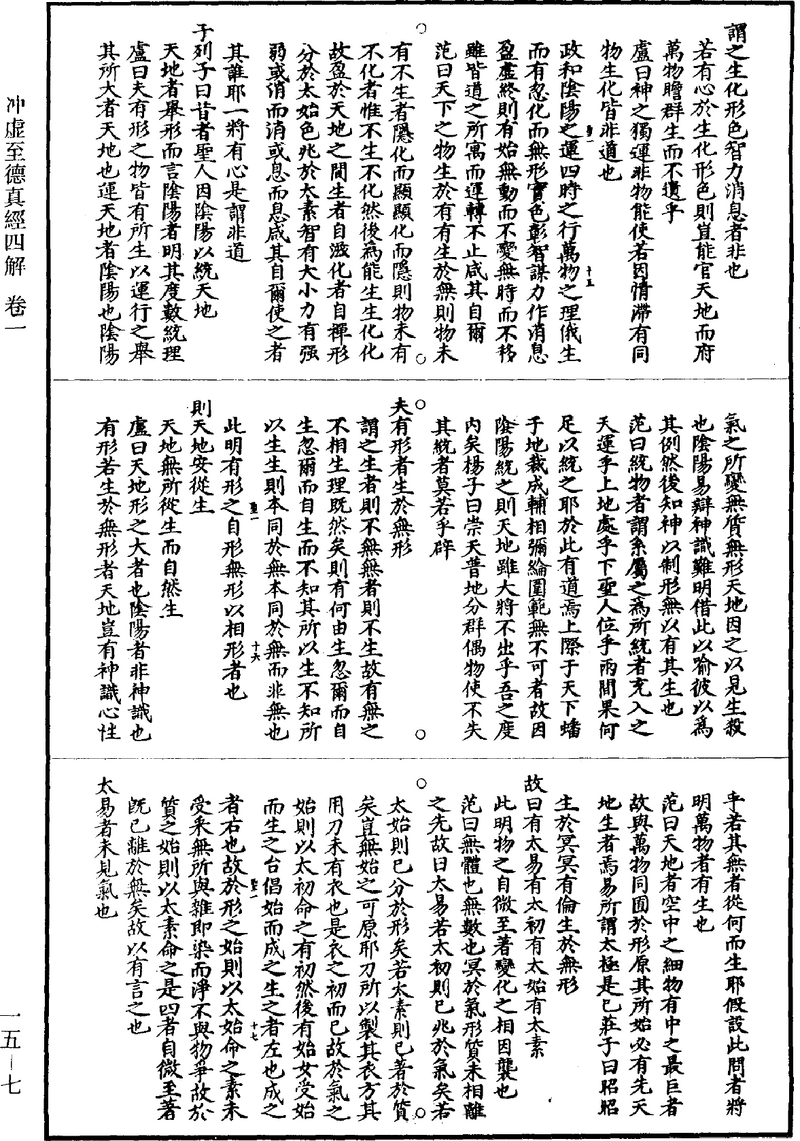 冲虛至德真經四解 卷一
謂之生化形色智力消息者非也
若有心於生化形色則豈能官天地而府
萬物贍群生而不遺乎
盧曰神之獨運非物能使若因情滯有同
物生化皆非道也
政和陰陽之運四時之行萬物之理俄生
而有忽化而無形實色彰智謀力作消息
盈虛終則有始無動而不變無時而不移
雖皆道之所寓而運轉不止咸其自爾
范曰天下之物生於有有生於無則物未
有不生者隱化而顯顯化而隱則物未有
不化者惟不生不化然後為能生生化化
故盈於天地之間生者自滋化者自禪形
分於太始色兆於太素智有大小力有强
弱或消而消或息而息咸其自爾使之者
其誰耶一將有心是謂非道
子列子曰昔者聖人因陰陽以統天地
天地者舉形而言陰陽者明其度數統理
盧曰夫有形之物皆有所生以運行之舉
其所大者天地也運天地者陰陽也陰陽
氣之所變無質無形天地因之以見生殺
也陰陽易辯神識難明借此以喻彼以為
其例然後知神以制形無以有其生也
范曰統物者謂系屬之為所統者充入之
天運乎上地處乎下聖人位乎兩間果何
足以統之耶於此有道焉上際于天下蟠
于地裁成輔相彌綸圍範無不可者故因
陰陽統之則天地雖大將不出乎吾之度
內矣楊子曰崇天普地分群偶物使不失
其統者莫若乎辟
夫有形者生於無形
謂之生者則不無無者則不生故有無之
不相生理既然矣則有何由生忽爾而自
生忽爾而自生而不知其所以生不知所
以生生則本同於無本同於無而非無也
此明有形之自形無形以相形者也
則天地安從生
天地無所從生而自然生
盧曰天地形之大者也陰陽者非神識也
有形若生於無形者天地豈有神識心性
乎若其無者從何而生耶假設此問者將
明萬物者有生也
范曰天地者空中之細物有中之最巨者
故與萬物同囿於形原其所始必有先天
地生者焉易所謂太極是已莊子曰昭昭
生於冥冥有倫生於無形
故曰有太易有太初有太始有太素
此明物之自微至著變化之相因襲也
范曰無體也無數也冥於氣形質未相離
之先故曰太易若太初則已兆於氣矣若
太始則已分於形矣若太素則已著於質
矣豈無始之可原耶刀所以製其衣方其
用刀未有衣也是衣之初而已故於氣之
始則以太初命之有初然後有始女受始
而生之台倡始而成之生之者左也成之
者右也故於形之始則以太始命之素未
受采無所與雜即染而淨不與物爭故於
質之始則以太素命之是四者自微至著
既已離於無矣故以有言之也
太易者未見氣也
一五－七